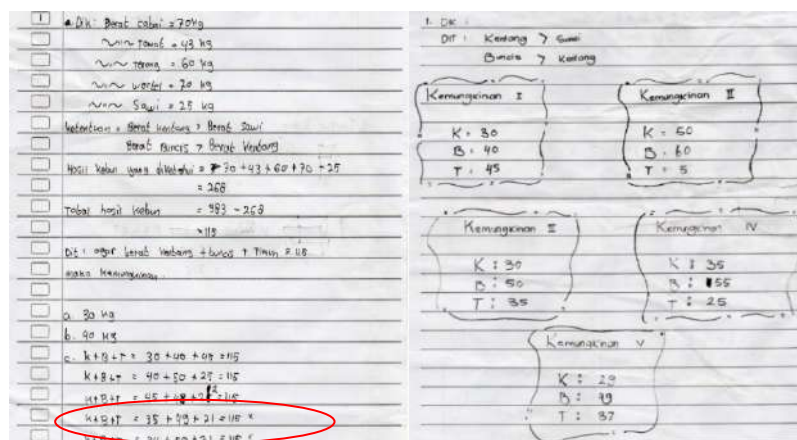 1
Dik : Berat cabai = 70kg
tomat = 43 kg
terong = 60 kg
wortel = 70 kg
Sawi = 25 kg
ketentuan = Berat kentang > Berat Sawi
Berat Buncis > Berat kentang
Hasil kebun yang diketahui = 70 + 43 + 60 + 70 + 25
= 268
Total hasil kebun = 383 - 268
= 115
Dit : agar berat kentang + buncis + Timun = 115
maka kemungkinan
a. 30 kg
b. 40 kg
c. K+B+T = 30 + 40 + 45 = 115
K+B+T = 40 + 50 + 25 = 115
K+B+T = 45 + 48 + 22 = 115
K+B+T = 35 + 49 + 21 = 115 x
1. DK :
DIT : Kentang > Sawi
Buncis > Kentang
Kemungkinan I
K = 30
B = 40
T = 45
Kemungkinan II
K = 50
B = 60
T = 5
Kemungkinan III
K : 30
B : 50
T : 35
Kemungkinan IV
K : 35
B : 55
T : 25
Kemungkinan V
K : 29
B : 49
T : 37